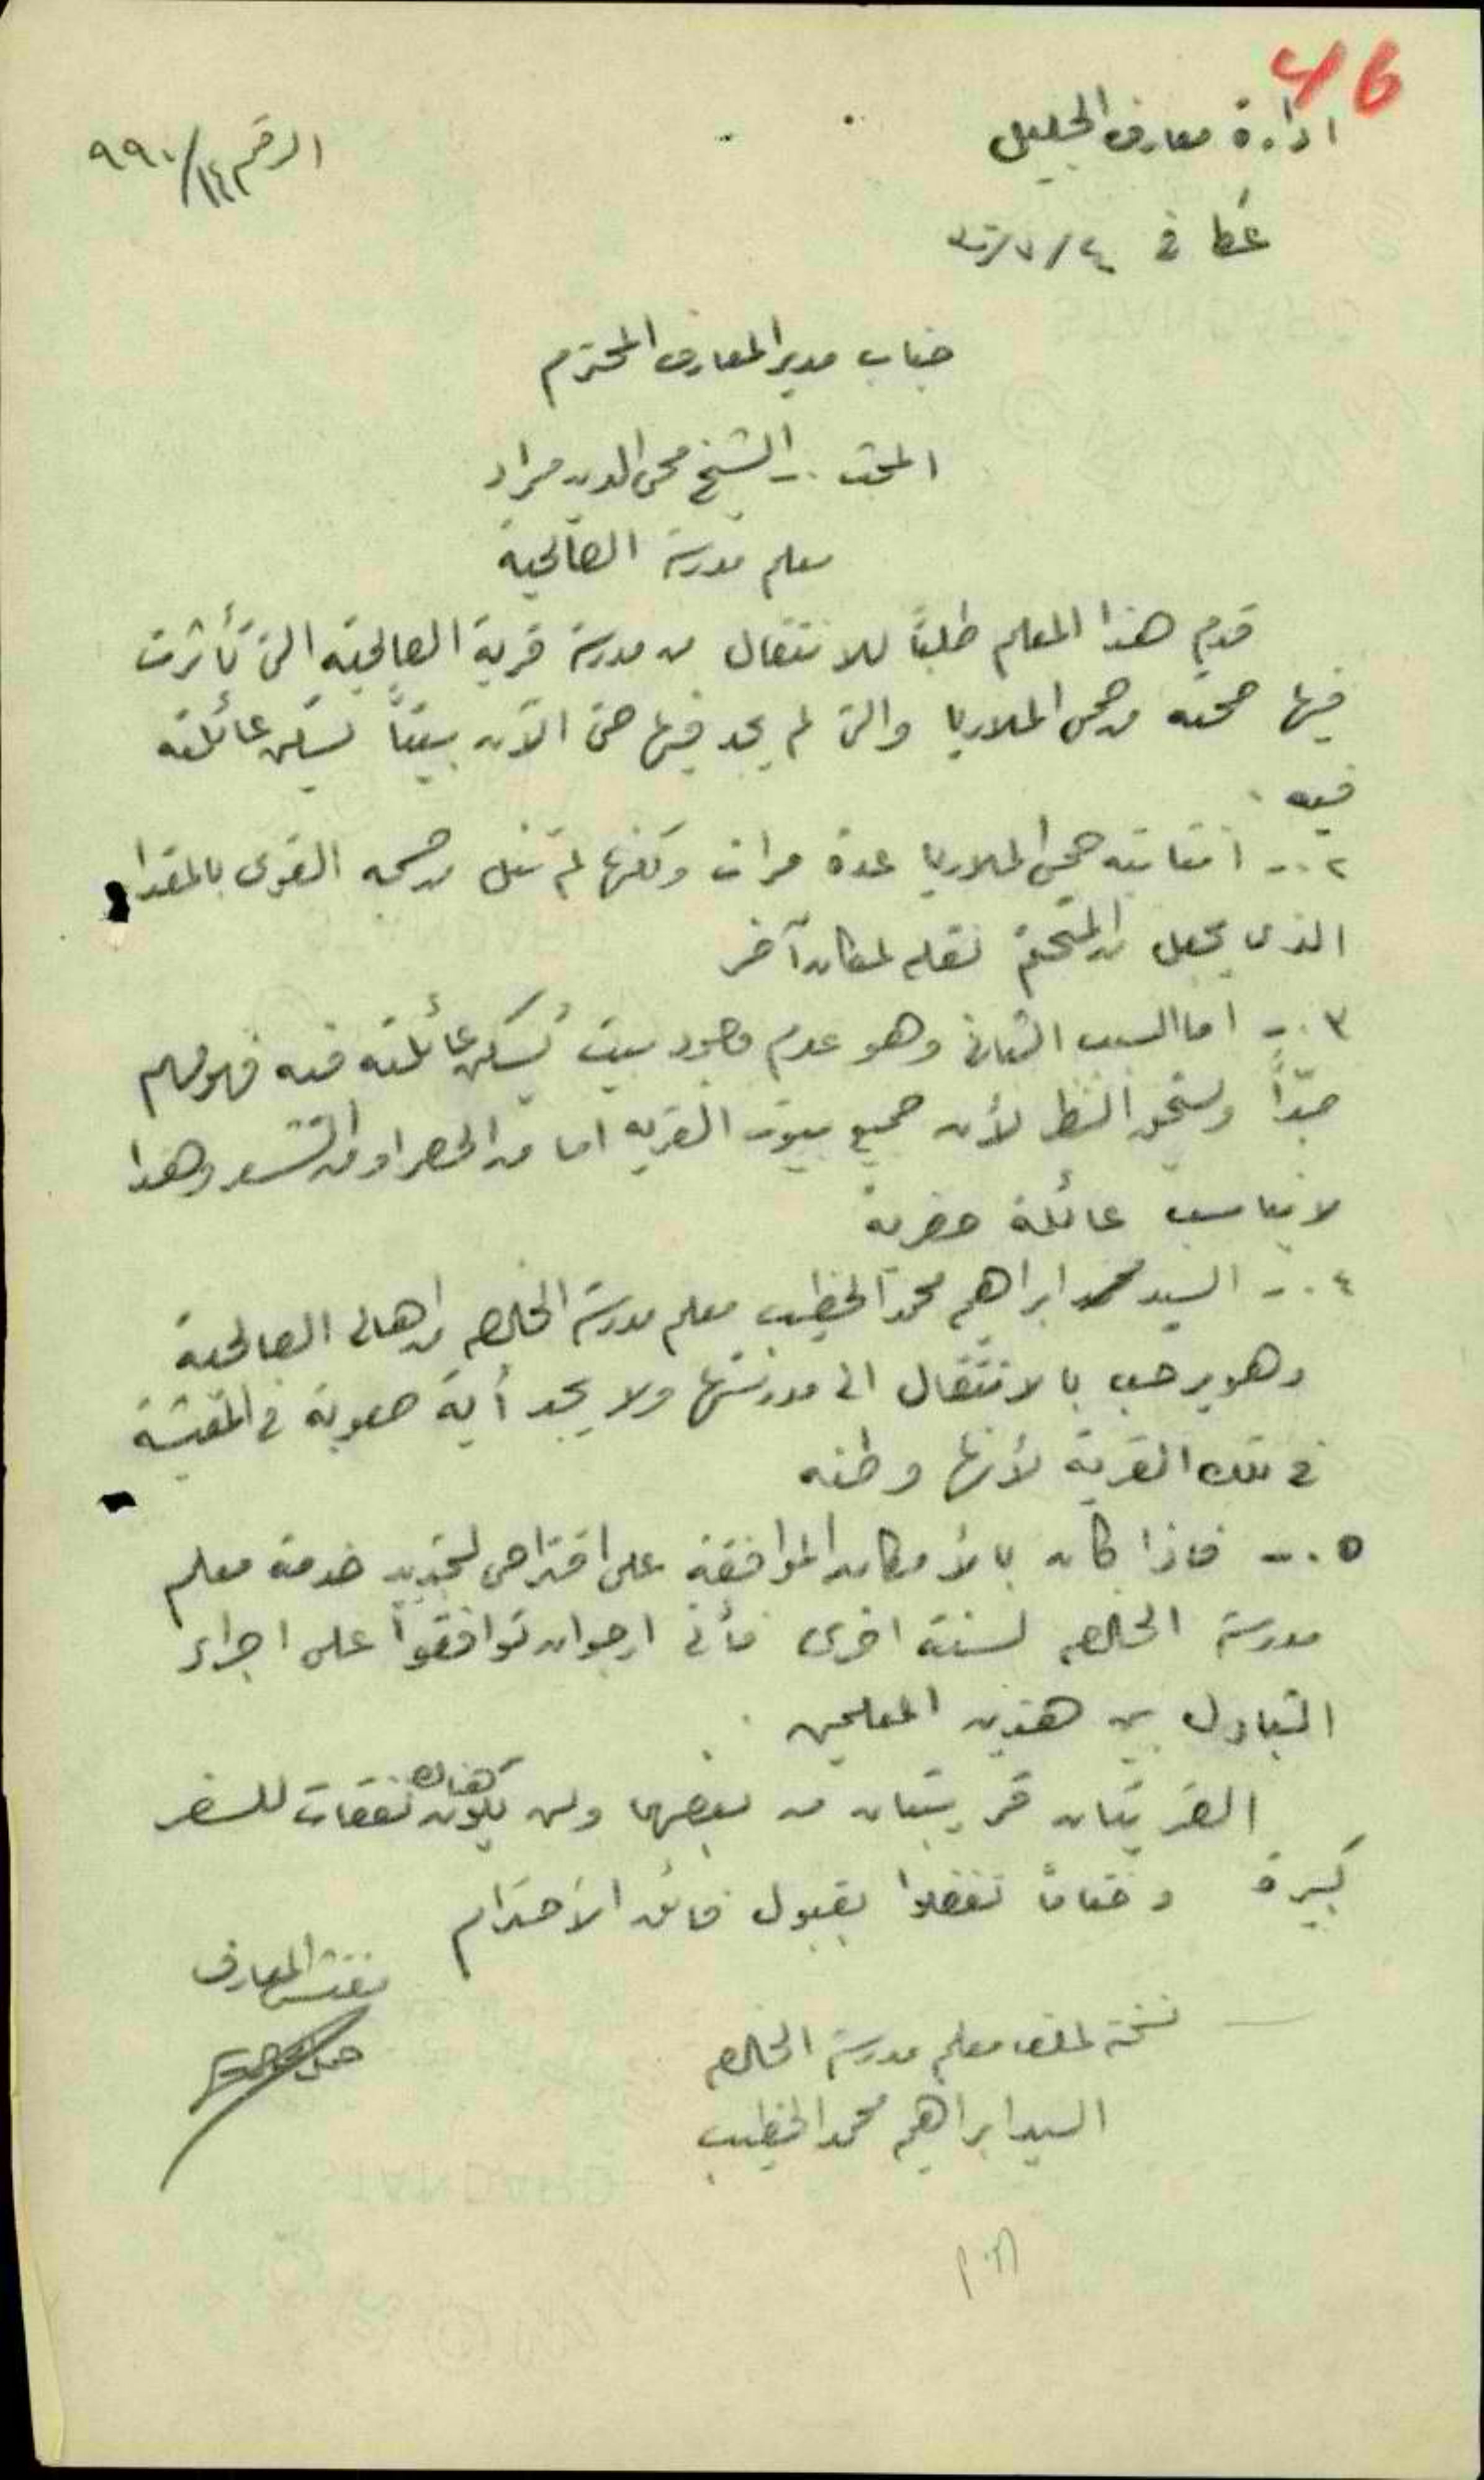 46
ادارة معارف الجليل
الرقم ٩٩٠/١٤
عكا في
جناب مدير المعارف المحترم
المبحث :- الشيخ محي الدين مراد
معلم مدرسة الصالحية
قدم هذا المعلم طلبًا للانتقال من مدرسة قرية الصالحية التي تأثرت
فيها صحته من حمى الملاريا والتي لم يجد فيها حتى الآن بيتًا لسكن عائلته
فيه .
٢ - انتابته حمى الملاريا عدة مرات ولكنها لم تنل من جسمه القوي بالمقدار
الذي يجعل من المتحتم نقله لمكان آخر
٣ - اما السبب الثاني وهو عدم وجود بيت تسكن عائلته فيه فهو مهم
جدًا ويستحق النظر لأن جميع بيوت القرية اما من الحصر او من الشعر وهذا
لا يناسب عائلة حضرية
٤ - السيد ابراهيم محمد الخطيب معلم مدرسة الخالصه من اهالي الصالحية
وهو يرحب بالانتقال الى مدرستها ولا يجد أية صعوبة في المعيشة
في تلك القرية لأنها وطنه
٥ - فاذا كان بالأمكان الموافقة على اقتراحي لتجديد خدمة معلم
مدرسة الخالصه لسنة اخرى فأني ارجو ان توافقوا على اجراء
التبادل بين هذين المعلمين .
القريتان قريبتان من بعضهما ولن تكون هناك نفقات للسفر
كبيرة وختامًا تفضلوا بقبول فائق الأحترام
مفتش المعارف
نسخة لملف معلم مدرسة الخالصه
السيد ابراهيم محمد الخطيب